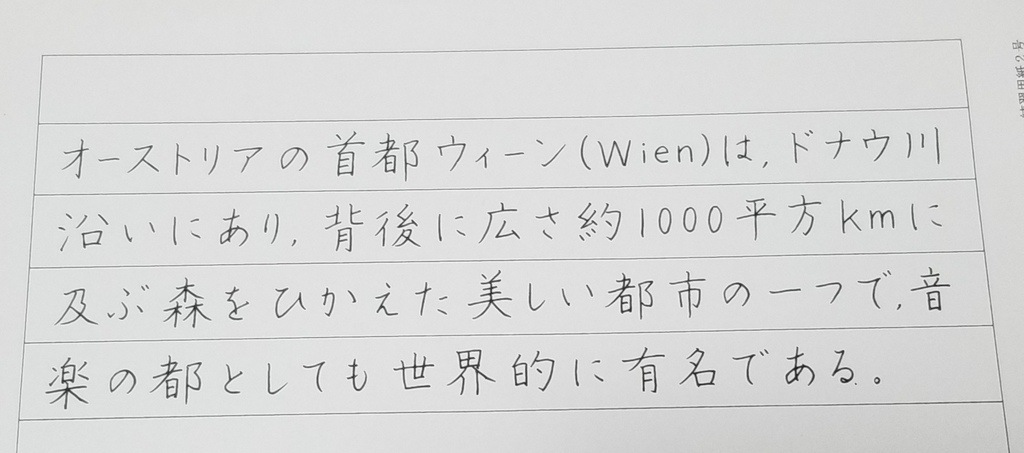 オーストリアの首都ウィーン(Wien)は,ドナウ川
沿いにあり,背後に広さ約1000平方kmに
及ぶ森をひかえた美しい都市の一つで,音
楽の都としても世界的に有名である。